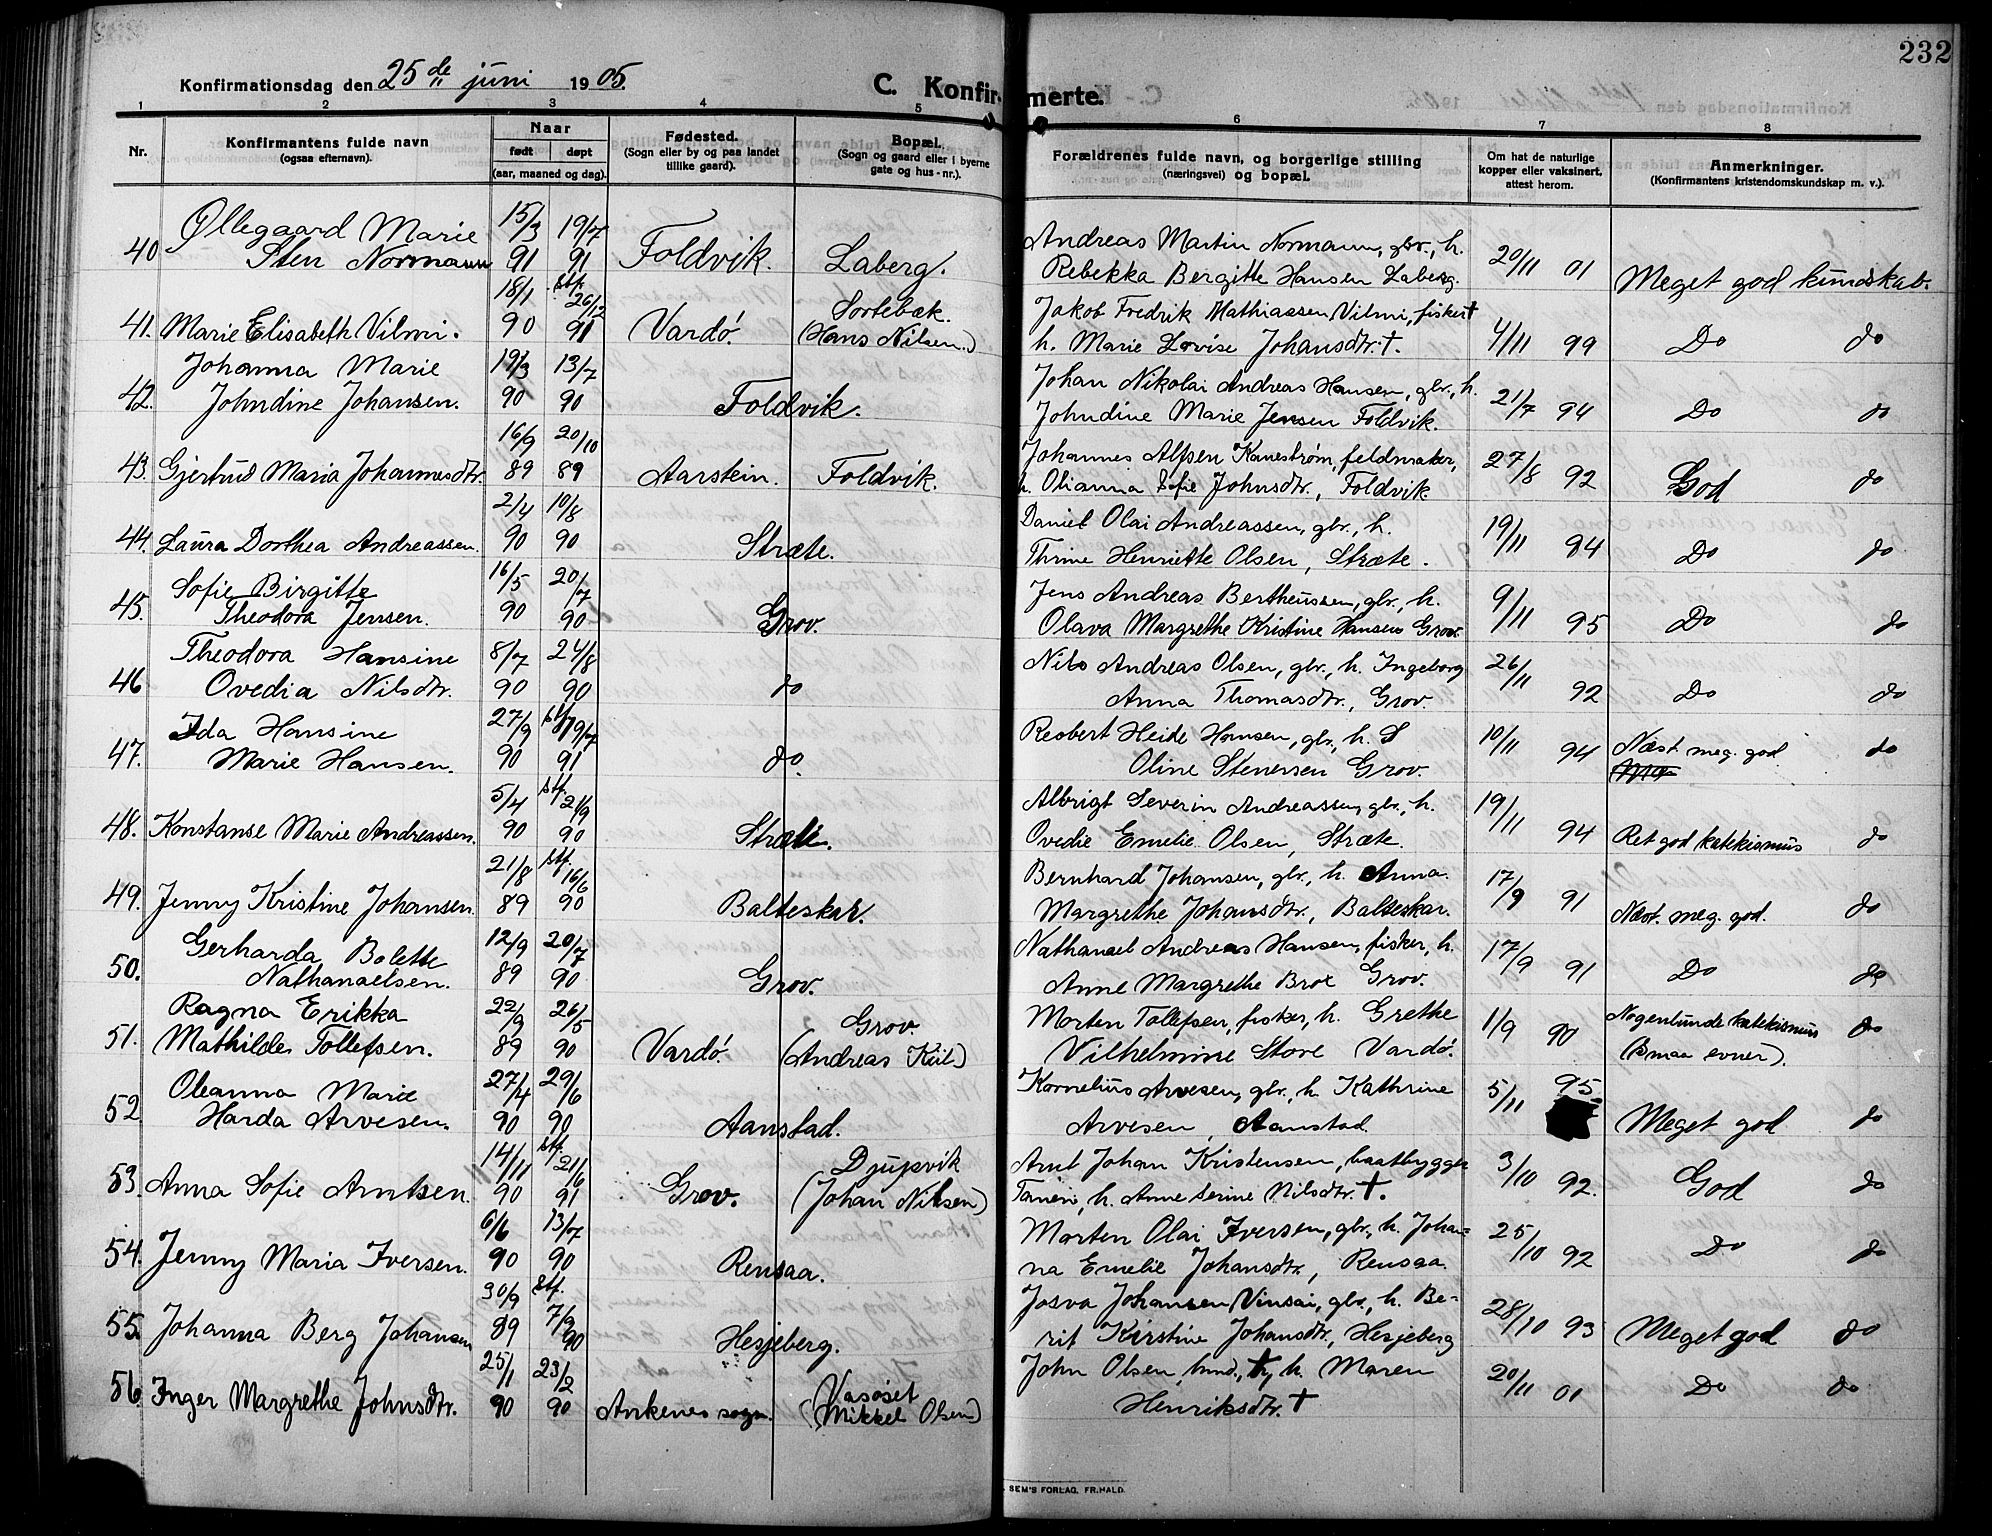 232
Konfirmationsdag den 25de juni 1905.
C. Konfirmerte.
1 2 3 4 5 6 7 8
Nr.
Konfirmantens fulde navn
(ogsaa efternavn).
Naar
født døpt
(aar, maaned og dag).
Fødested.
(Sogn eller by og paa landet
tillike gaard).
Bopæl.
(Sogn og gaard eller i byerne
gate og hus-nr.).
Forældrenes fulde navn, og borgerlige stilling
(næringsvei) og bopæl.
Om hat de naturlige
kopper eller vaksinert,
attest herom.
Anmerkninger.
(Konfirmantens kristendomskundskap m. v.).
Øllegaard Marie 15/3 19/7 Andreas Martin Normann, gbr., h.
40 Sten Normann 91 91 Foldvik. Laberg. Rebekka Bergitte Hansen Laberg. 20/11 01 Meget god kundskab.
18/1 stf. 26/12 Sortebæk. Jakob Fredrik Mathiassen Vilmi, fisker †
41. Marie Elisabeth Vilmi. 90 91 Vardö. (Hans Nilsen.) h. Marie Lovise Johansdtr. †. 4/11 99 Do do
Johanna Marie 19/3 13/7 Johan Nikolai Andreas Hansen, gbr., h.
42. Johndine Johansen. 90 90 Foldvik. Johndine Marie Jensen Foldvik. 21/7 94 Do do
16/9 20/10 Johannes Alfsen Kanestrøm, feldmaker,
43. Gjertrud Maria Johannesdtr. 89 89 Aarstein. Foldvik. h. Olianna Sofie Johnsdtr., Foldvik 27/8 92 God do
2/4 10/8 Daniel Olai Andreassen, gbr., h.
44. Laura Dorthea Andreassen. 90 90 Stræte. Thrine Henriette Olsen, Stræte. 19/11 94 Do do
Sofie Birgitte 16/5 20/7 Jens Andreas Bertheussen, gbr., h.
45. Theodora Jensen. 90 90 Grov. Olava Margrethe Kristine Hansen Grov. 9/11 95 Do do
Theodora Hansine 8/7 24/8 Nils Andreas Olsen, gbr., h. Ingeborg
46 Ovedia Nilsdtr. 90 90 do Anna Thomasdtr., Grov. 26/11 92 Do do
Ida Hansine 27/9 stf 19/7 Reobert Heide Hansen, gbr., h. S
47. Marie Hansen. 90 91 do. Oline Stenersen Grov. 10/11 94 Næst. meg. god do
5/4 stf. 21/9 Albrigt Severin Andreassen, gbr., h.
48. Konstanse Marie Andreassen. 90 90 Stræte. Ovedie Emelie Olsen, Stræte. 19/11 94 Ret god katekismus do
21/8 stf. 16/6 Bernhard Johansen, gbr., h. Anna
49. Jenny Kristine Johansen. 89 90 Balteskar. Margrethe Johansdtr., Balteskar. 17/9 91 Næst. meg. god. do
Gerharda Bolette 12/9 20/7 Nathanael Andreas Hansen, fisker, h.
50. Nathanaelsen. 89 90 Grov. Anne Margrethe Brox Grov. 17/9 91 Do do
Ragna Erikka 22/9 26/5 Grov. Morten Tollefsen, fisker, h. Grethe Nogenlunde katekismus
51. Mathilde Tollefsen. 89 90 Vardö. (Andreas Kiil) Vilhelmine Store Vardö. 1/9 90 (smaa evner). do
Oleanna Marie 27/4 29/6 Kornelius Arvesen, gbr., h. Kathrine
52 Harda Arvesen. 90 90 Aanstad. Arvesen, Aanstad. 5/11 95 Meget god do
14/11 stf. 21/6 Djupvik Arnt Johan Kristensen, baatbygger
53. Anna Sofie Arntsen. 90 91 Grov. (Johan Nilsen) h. Anne Serine Nilsdtr. †. 3/10 92. God do
6/6 13/7 Morten Olai Iversen, gbr., h. Johan-
54. Jenny Maria Iversen. 90 90 Rensaa. na Emelie Johansdtr., Rensaa. 25/10 92 Do do
30/9 stf. Josva Johansen Vinsai, gbr., h. Be-
55. Johanna Berg Johansen 89 7/9 90 Hesjeberg. rit Kirstine Johansdtr., Hesjeberg 28/10 93 Meget god do
25/1 23/2 Vasøset John Olsen, ind., †, h. Maren
56. Inger Margrethe Johnsdtr. 90 90 Ankenes sogn. (Mikkel Olsen) Henriksdtr. † 20/11 01 Do do
SEM'S FORLAG, FR.HALD.